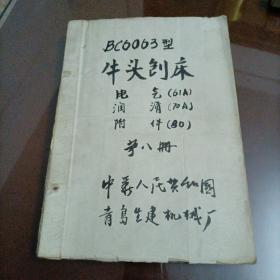 BC6063型
牛头刨床
电气(61A)
润滑(70A)
附件(80)
第八册
中华人民共和国
青岛生建机械厂